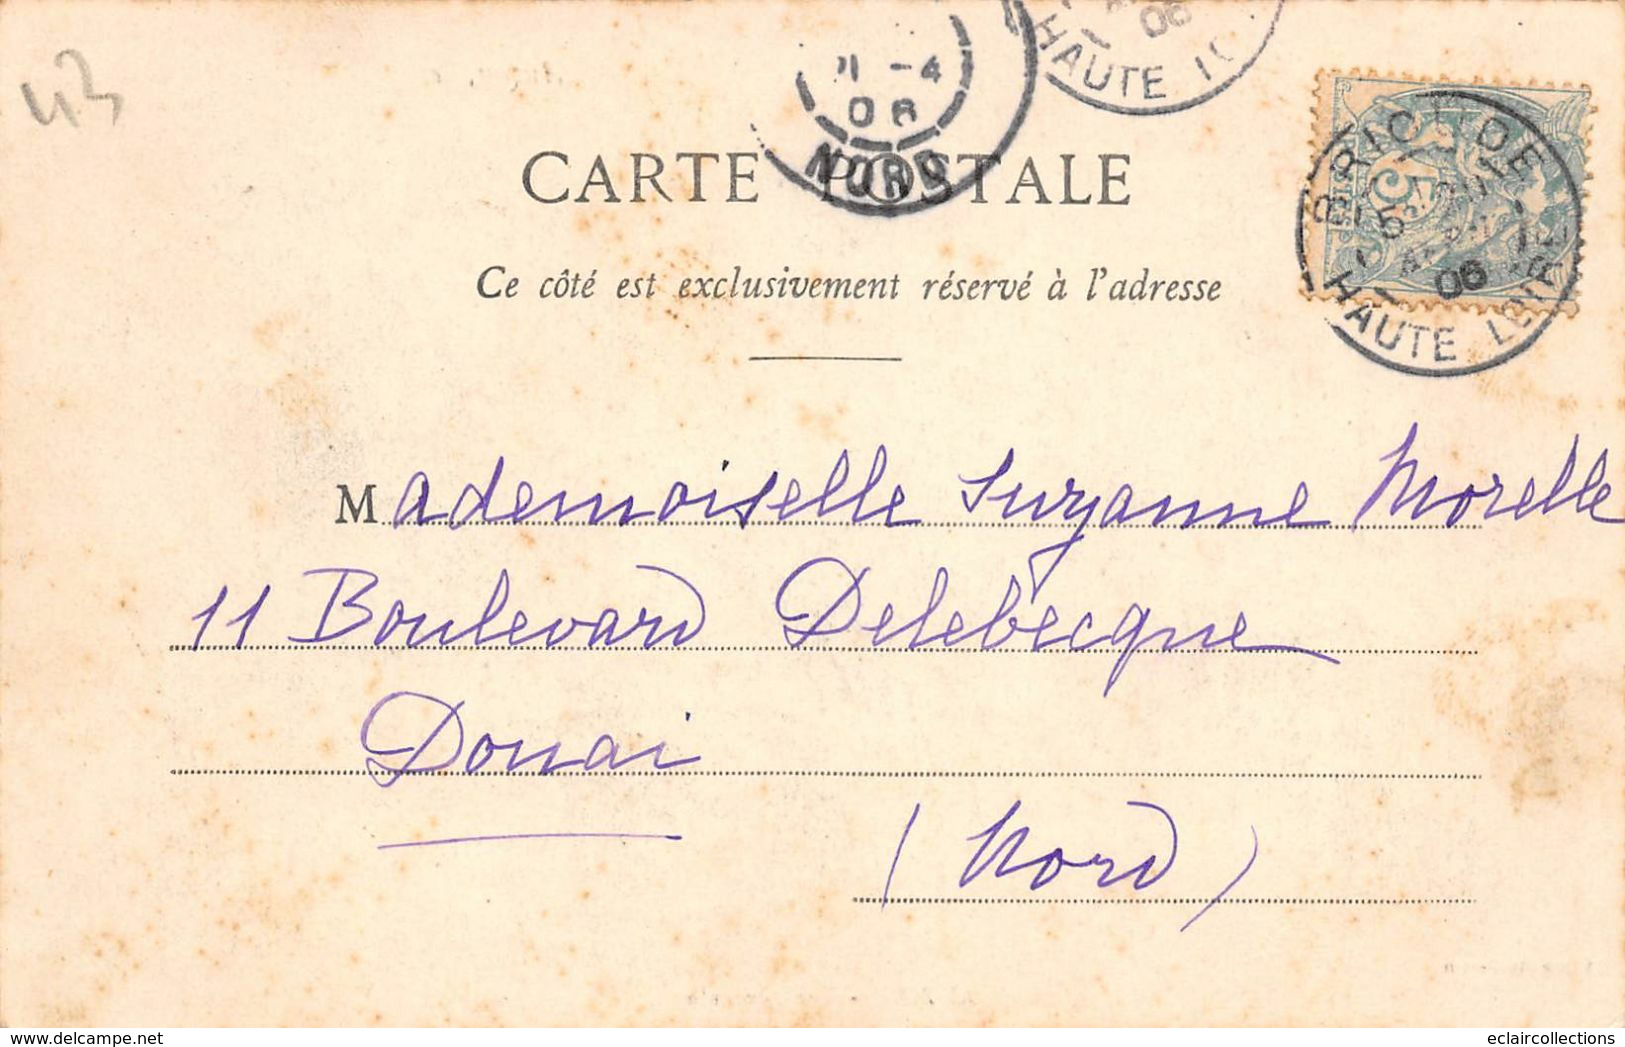 43
-4
06
NORD
06
HAUTE
BRIOUDE
5
06
HAUTE LOIRE
CARTE POSTALE
Ce côté est exclusivement réservé à l'adresse
Mademoiselle Suzanne Morelle
11 Boulevard Delebecque
Douai
(Nord)
eclaircollections